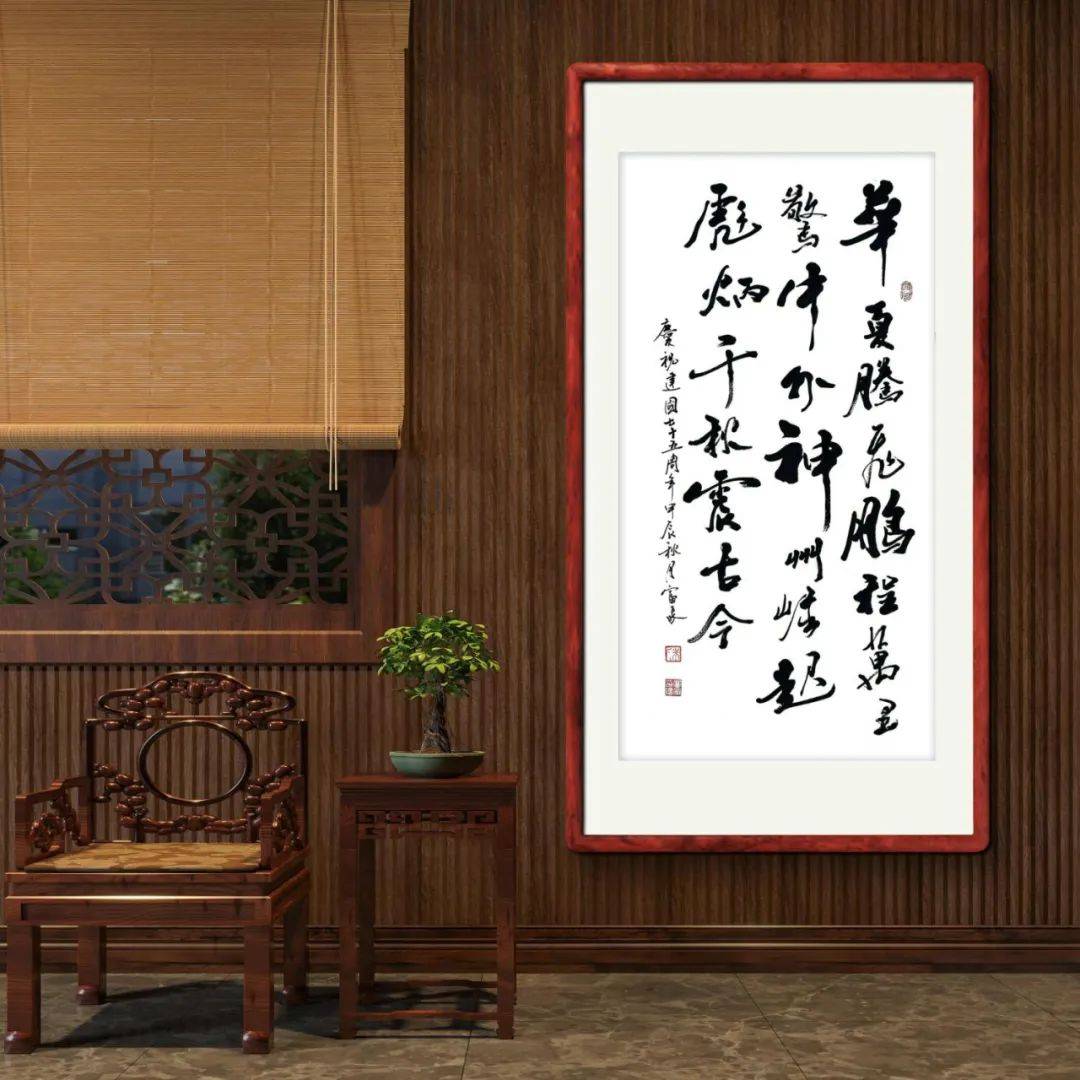 華夏騰飛鵬程萬里
驚中外神州崛起
彪炳千秋震古今
慶祝建國七十五周年甲辰秋月富